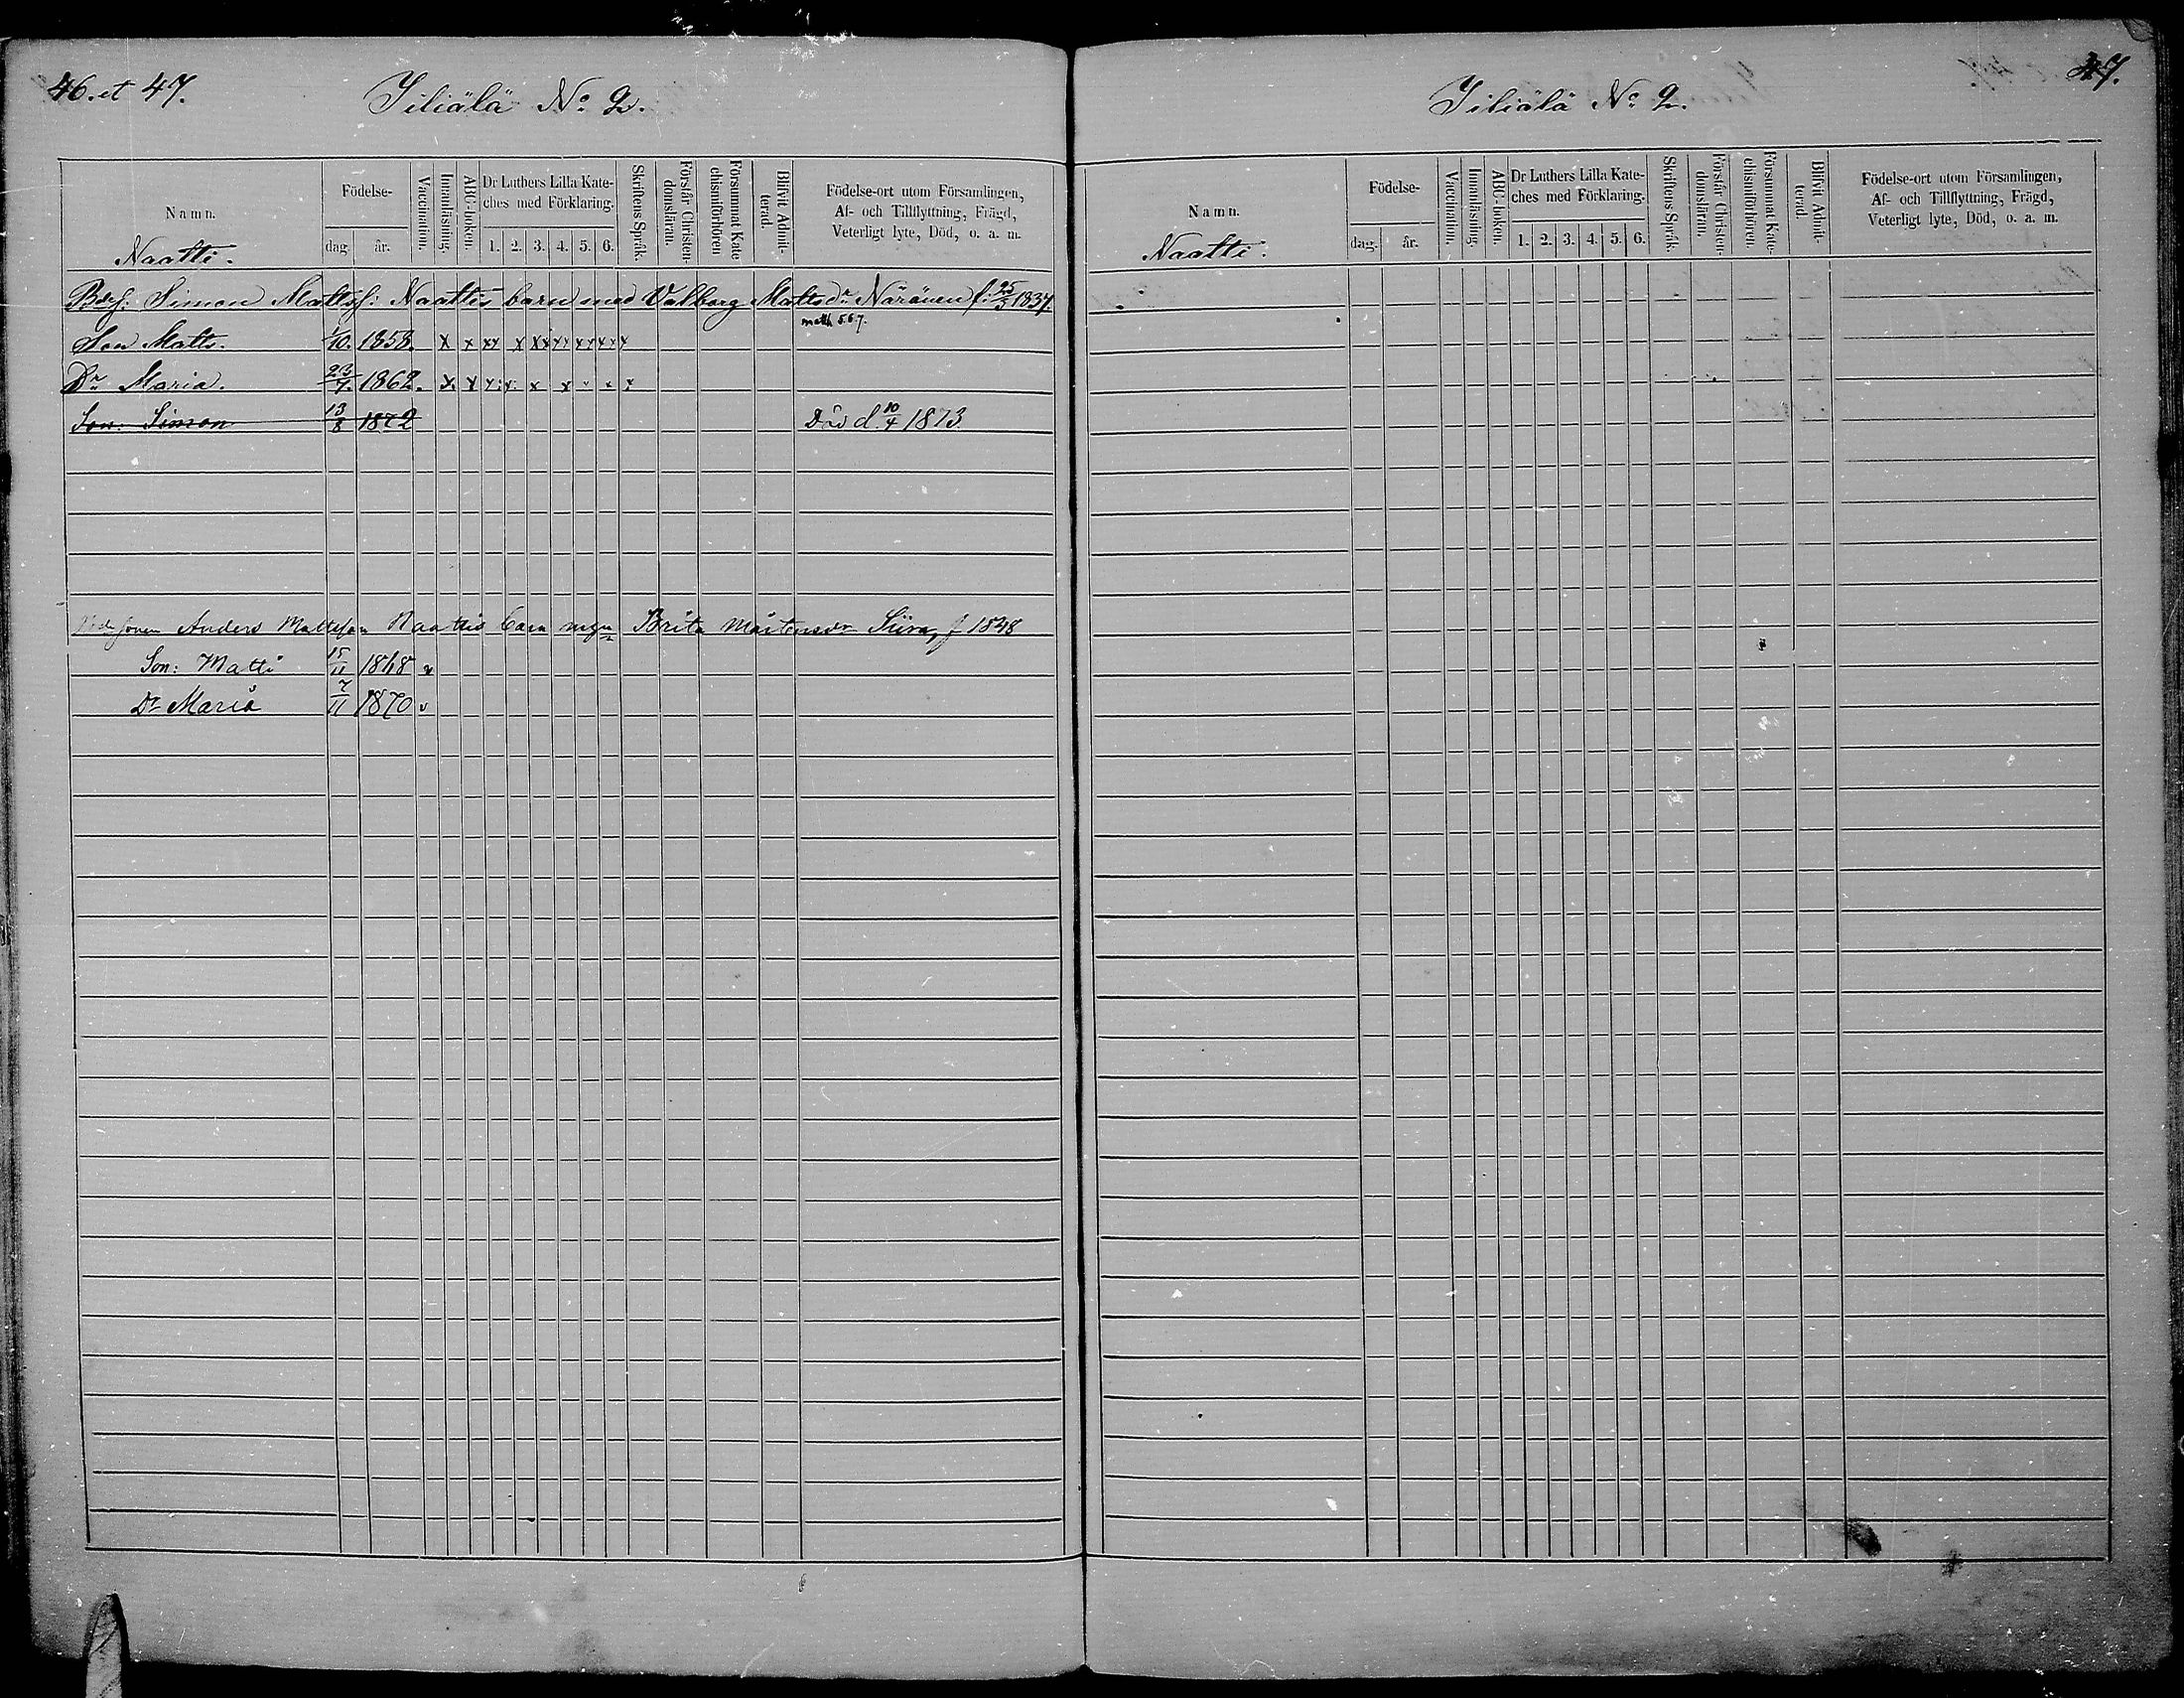 46. et 47.
Jiliälä No 2.
Namn.
Födelse-
dag
år.
Vaccination.
Innanläsning.
ABC-boken.
Dr Luthers Lilla Kate-
ches med Förklaring.
1. 2. 3. 4. 5. 6.
Skriftens Språk.
Förstår Christen-
domsläran.
Försummat Kate
chismiförhören
Blifvit Admit-
terad.
Födelse-ort utom Församlingen,
Af- och Tillflyttning, Frägd,
Veterligt lyte, Död, o. a. m.
Naatti.
Simon Matts: Naattis barn med Valborg Mattsdr Näränen f: 25/3 1837.
Son Matts. 1/10. 1858. x x xx x xx xx xx xx x math 5.6.7.
Dr Maria. 23/7. 1862. x x x x x x x x x
Son: Simon 13/8 1872 Död d. 10/4 1873
Anders Mattsson Naattis barn Brita Mårtensdr Siira, f 1848
Son: Matti 15/11 1868 v
Dr Maria 7/11 1870 v
47.
Jiliälä No 2.
Namn.
Födelse-
dag.
år.
Vaccination.
Innanläsning.
ABC-boken.
Dr Luthers Lilla Kate-
ches med Förklaring.
1. 2. 3. 4. 5. 6.
Skriftens Språk.
Förstår Christen-
domsläran.
Försummat Kate-
chismiförhören.
Blifvit Admit-
terad.
Födelse-ort utom Församlingen,
Af- och Tillflyttning, Frägd,
Veterligt lyte, Död, o. a. m.
Naatti.